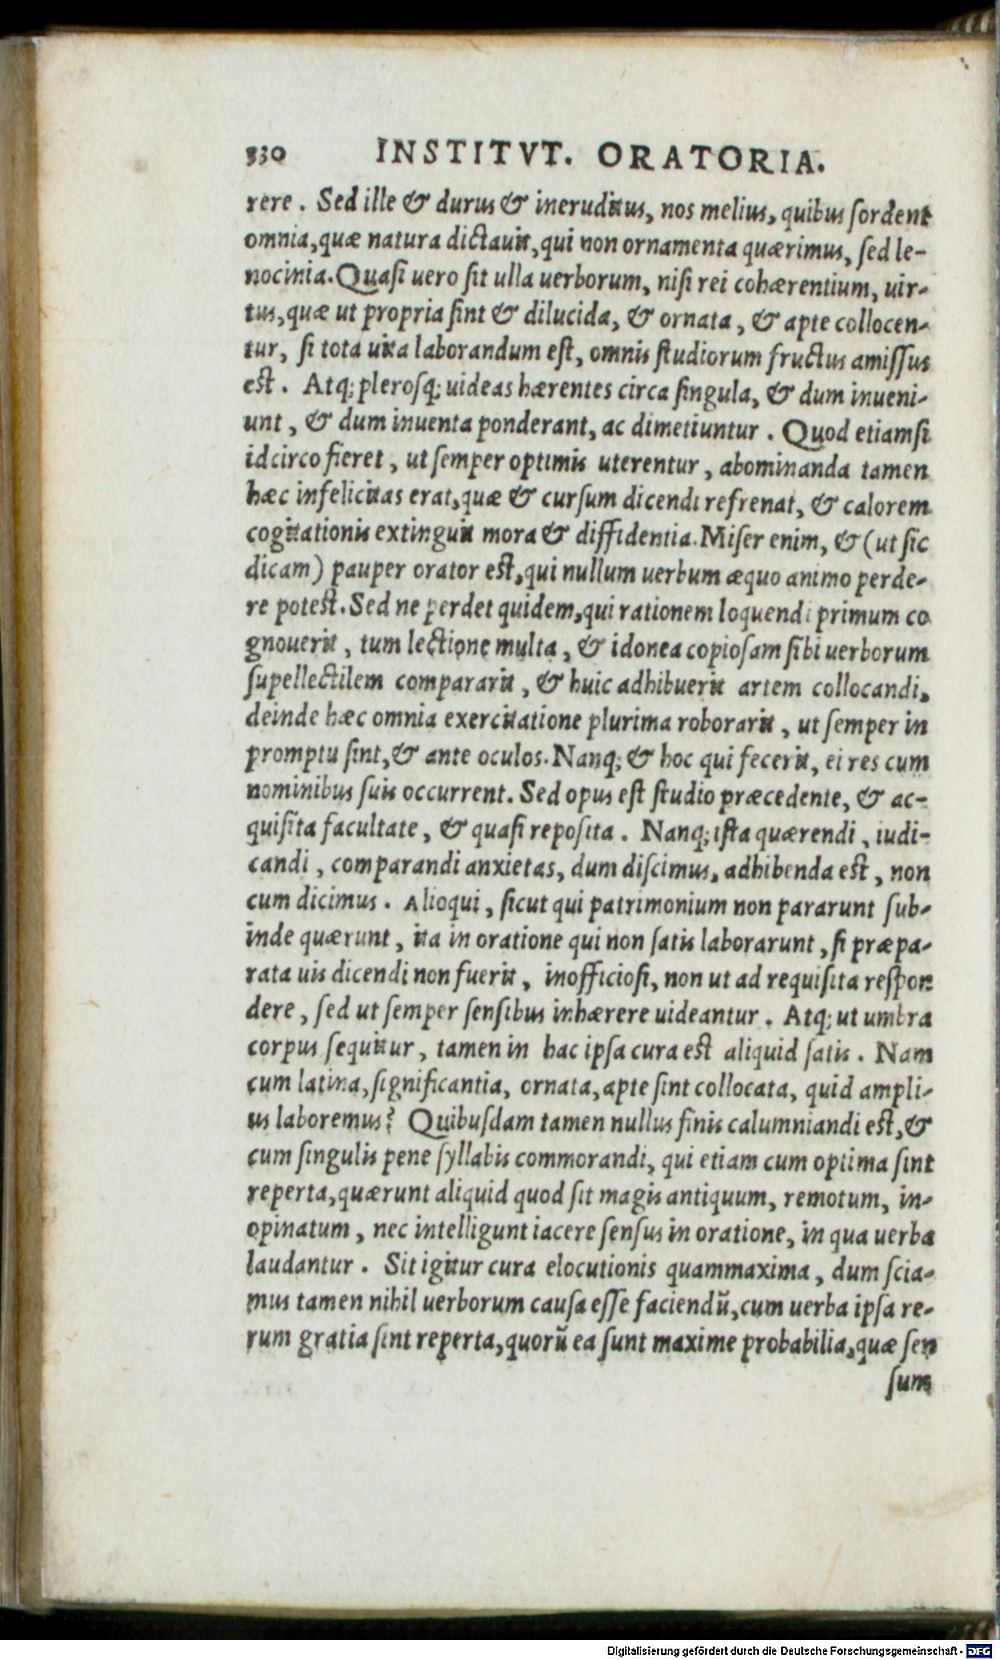 330 INSTITVT. ORATORIA.
rere. Sed ille & durus & ineruditus, nos melius, quibus sordent
omnia, quæ natura dictauit, qui non ornamenta quærimus, sed le-
nocinia. Quasi uero sit ulla uerborum, nisi rei cohærentium, uir-
tus, quæ ut propria sint & dilucida, & ornata, & apte collocen-
tur, si tota uita laborandum est, omnis studiorum fructus amissus
est. Atq; plerosq; uideas hærentes circa singula, & dum inueni-
unt, & dum inuenta ponderant, ac dimetiuntur. Quod etiamsi
idcirco fieret, ut semper optimis uterentur, abominanda tamen
hæc infelicitas erat, quæ & cursum dicendi refrenat, & calorem
cogitationis extinguit mora & diffidentia. Miser enim, & (ut sic
dicam) pauper orator est, qui nullum uerbum æquo animo perde-
re potest. Sed ne perdet quidem, qui rationem loquendi primum co
gnouerit, tum lectione multa, & idonea copiosam sibi uerborum
supellectilem compararit, & huic adhibuerit artem collocandi,
deinde hæc omnia exercitatione plurima roborarit, ut semper in
promptu sint, & ante oculos. Nanq; & hoc qui fecerit, ei res cum
nominibus suis occurrent. Sed opus est studio præcedente, & ac-
quisita facultate, & quasi reposita. Nanq; ista quærendi, iudi-
candi, comparandi anxietas, dum discimus, adhibenda est, non
cum dicimus. Alioqui, sicut qui patrimonium non pararunt sub-
inde quærunt, ita in oratione qui non satis laborarunt, si præpa-
rata uis dicendi non fuerit, inofficiosi, non ut ad requisita respon
dere, sed ut semper sensibus inhærere uideantur. Atq; ut umbra
corpus sequitur, tamen in hac ipsa cura est aliquid satis. Nam
cum latina, significantia, ornata, apte sint collocata, quid ampli-
us laboremus? Quibusdam tamen nullus finis calumniandi est, &
cum singulis pene syllabis commorandi, qui etiam cum optima sint
reperta, quærunt aliquid quod sit magis antiquum, remotum, in-
opinatum, nec intelligunt iacere sensus in oratione, in qua uerba
laudantur. Sit igitur cura elocutionis quammaxima, dum scia-
mus tamen nihil uerborum causa esse faciendũ, cum uerba ipsa re-
rum gratia sint reperta, quorũ ea sunt maxime probabilia, quæ sen
sum
Digitalisierung gefördert durch die Deutsche Forschungsgemeinschaft - DFG